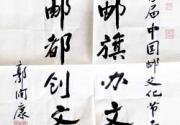 届中国邮文化节
邮旗办文
邮都创文
郭润康